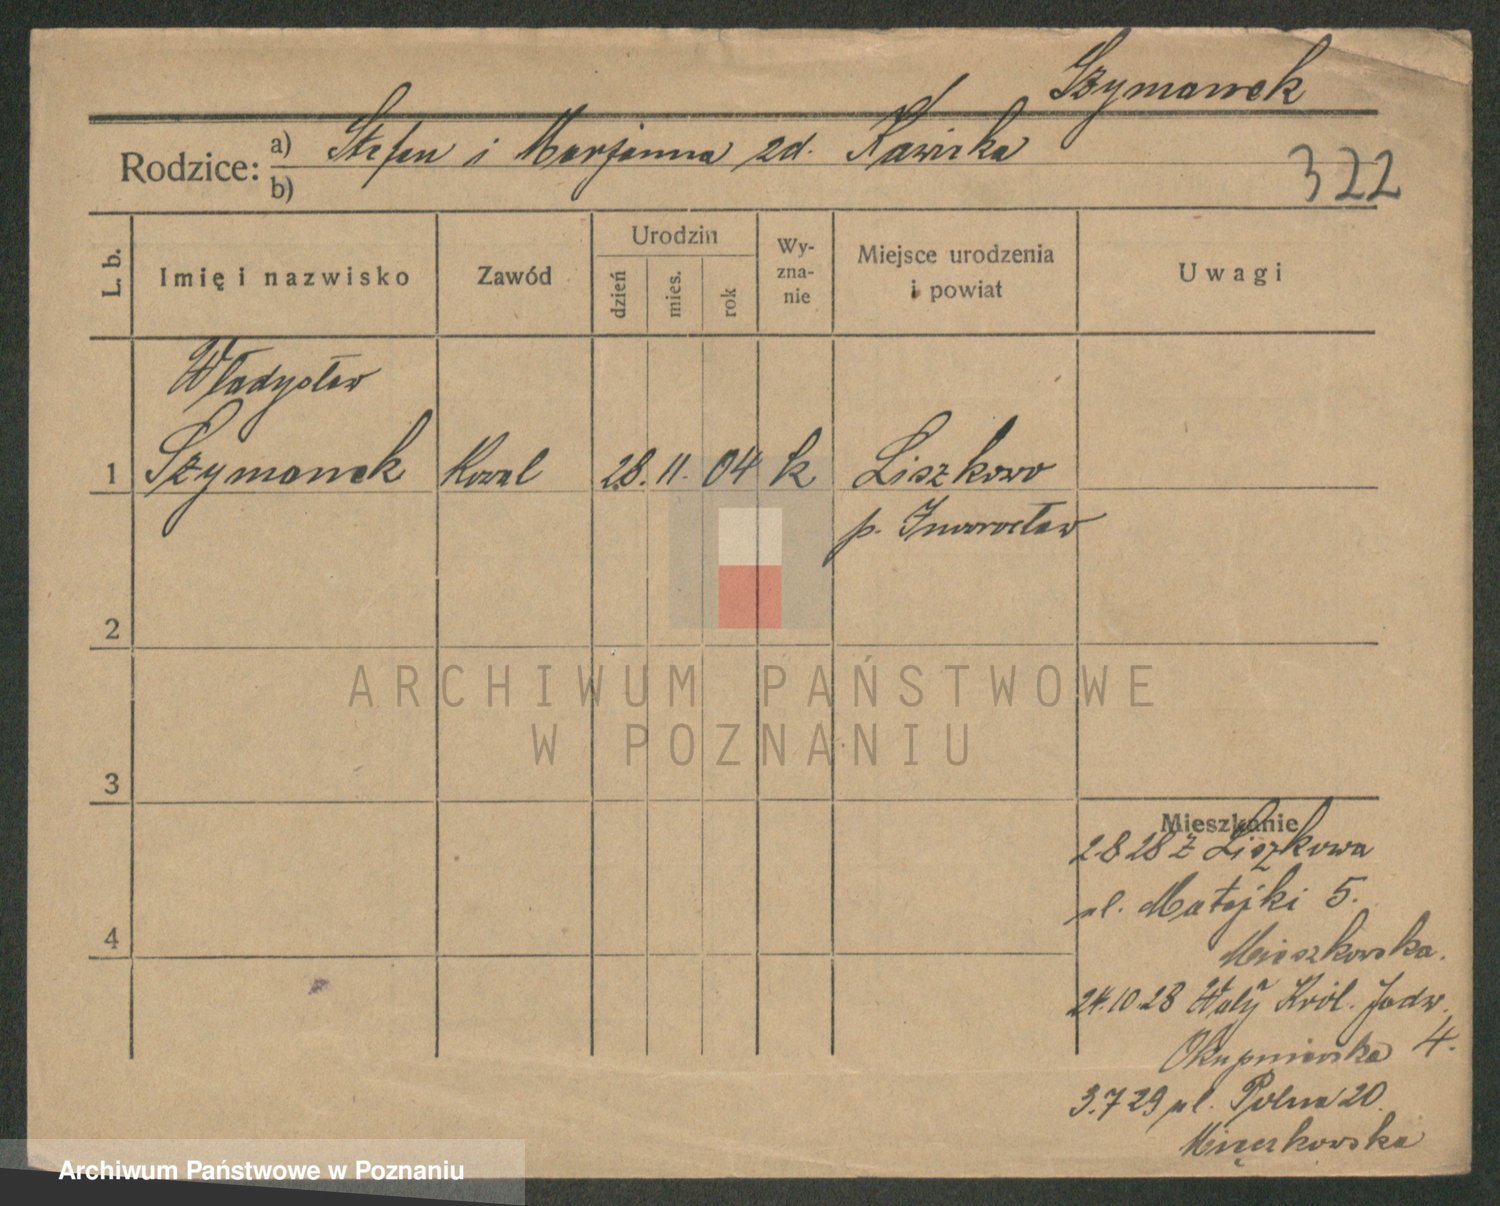 Szymanek
Rodzice: a) Stefan i Marjanna zd. Kawicka
b)
322
L. b.
Imię i nazwisko
Zawód
Urodzin
dzień
mies.
rok
Wy-
zna-
nie
Miejsce urodzenia
i powiat
Uwagi
Władysław
1 Szymanek Kowal 28. 11. 04 k Liszkowo
p. Inowrocław
2
3
4
Mieszkanie
2 8 28 z Liszkowa
ul. Matejki 5.
Mieszkowska.
24.10.28 Wały Król. Jadw.
4.
3.7 29 ul. Polna 20
ARCHIWUM PAŃSTWOWE
W POZNANIU
Archiwum Państwowe w Poznaniu